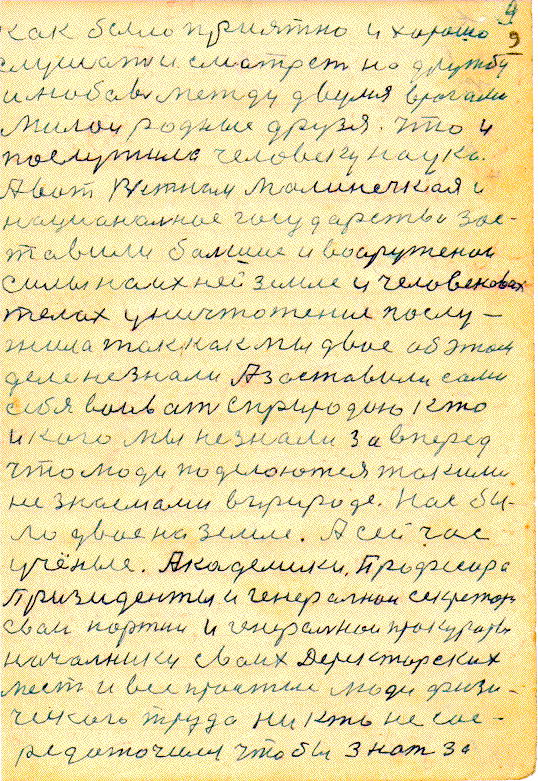 9
9
как было приятно и хорошо
слушат и сматрет на дружбу
и любов между двумя врагами
милои родные друзя. что и
послужила человеку наука.
А вот Ветнам малинечкая и
националное государство зос-
тавили болшие и вооруженои
силы на их ней земле и человековых
телах уничтожение послу-
жила так как мы двое об этом
деле не знали А заставили сами
себя воеват с природою кто
и кого мы не знали за вперед
что люди поделоются такими
не знаемами в природе. Нас бы-
ло двое на земле. А сей час
учёные. Академики, Професора
Призиденты и генералнои секретары
своих партии и генералнои прокуроры
началники своих Деректорских
мест и все простые люди физи-
ческого труда ни кто не сос-
редоточили что бы знат за